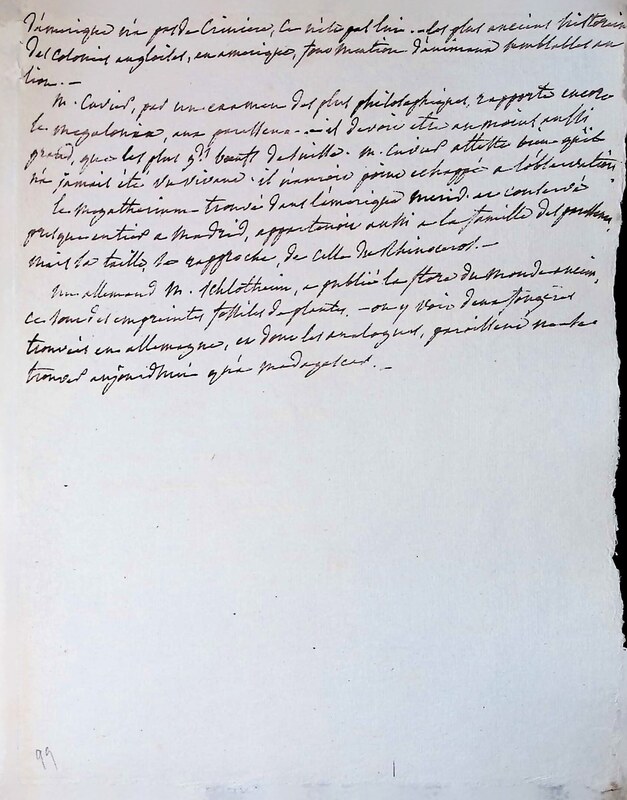 d'amerique n'a pas de Criniere, ce n'est pas lui. - les plus anciens historiens
des colonies angloises, en amerique, font mention d'animaux semblables au
lion. -
M. Cuvier, par un examen des plus philosophiques, rapporte encore
le megalonix, aux paresseux. - il devoit être au moins aussi
grand, que les plus gds boeufs de suisse. M. Cuvier atteste bien qu'il
n'a jamais été vu vivant. il n'auroit point echappé a l'observation.
le megatherium - trouvé dans l'amerique merid. et conservé
presque entier a Madrid, appartenoit aussi a la famille des paresseux,
mais sa taille, le rapproche, de celle du Rhinoceros. -
un allemand M. Schlotheim, a publié la flore du monde ancien,
ce sont des empreintes fossiles de plantes. - on y voit deux fougères
trouvées en allemagne, et dont les analogues, paroissent ne se
trouver aujourdhui qu'a Madagascar. -
99